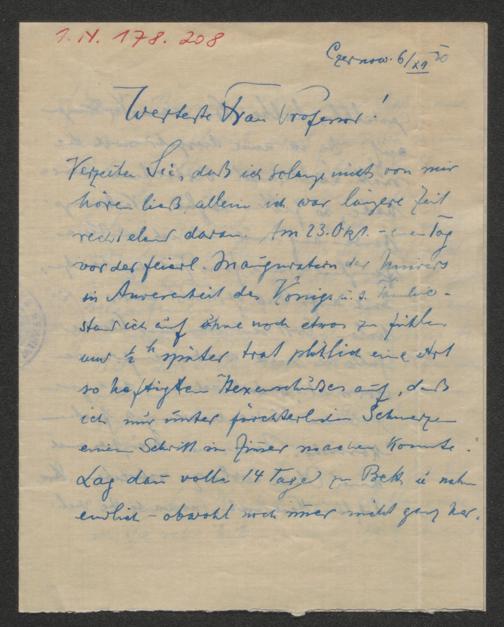 I. N. 178.208
Czernow. 6/XII 20
Werteste Frau Professor!
Verzeihen Sie, daß ich solange nichts von mir
hören ließ, allein ich war längere Zeit
recht elend daran. Am 23. Okt. – einen Tag
vor der feierl. Inauguration der Univers.
in Anwesenheit des Königs u. s.
stand ich auf ohne noch etwas zu fühlen
und ½ h später trat plötzlich eine Art
so heftigsten Hexenschußes auf, daß
ich nur unter fürchterlichen Schmerzen
einen Schritt im Zimer machen konnte.
Lag dan volle 14 Tage zu Bett, u
endlich – obwohl noch imer nicht ganz her-